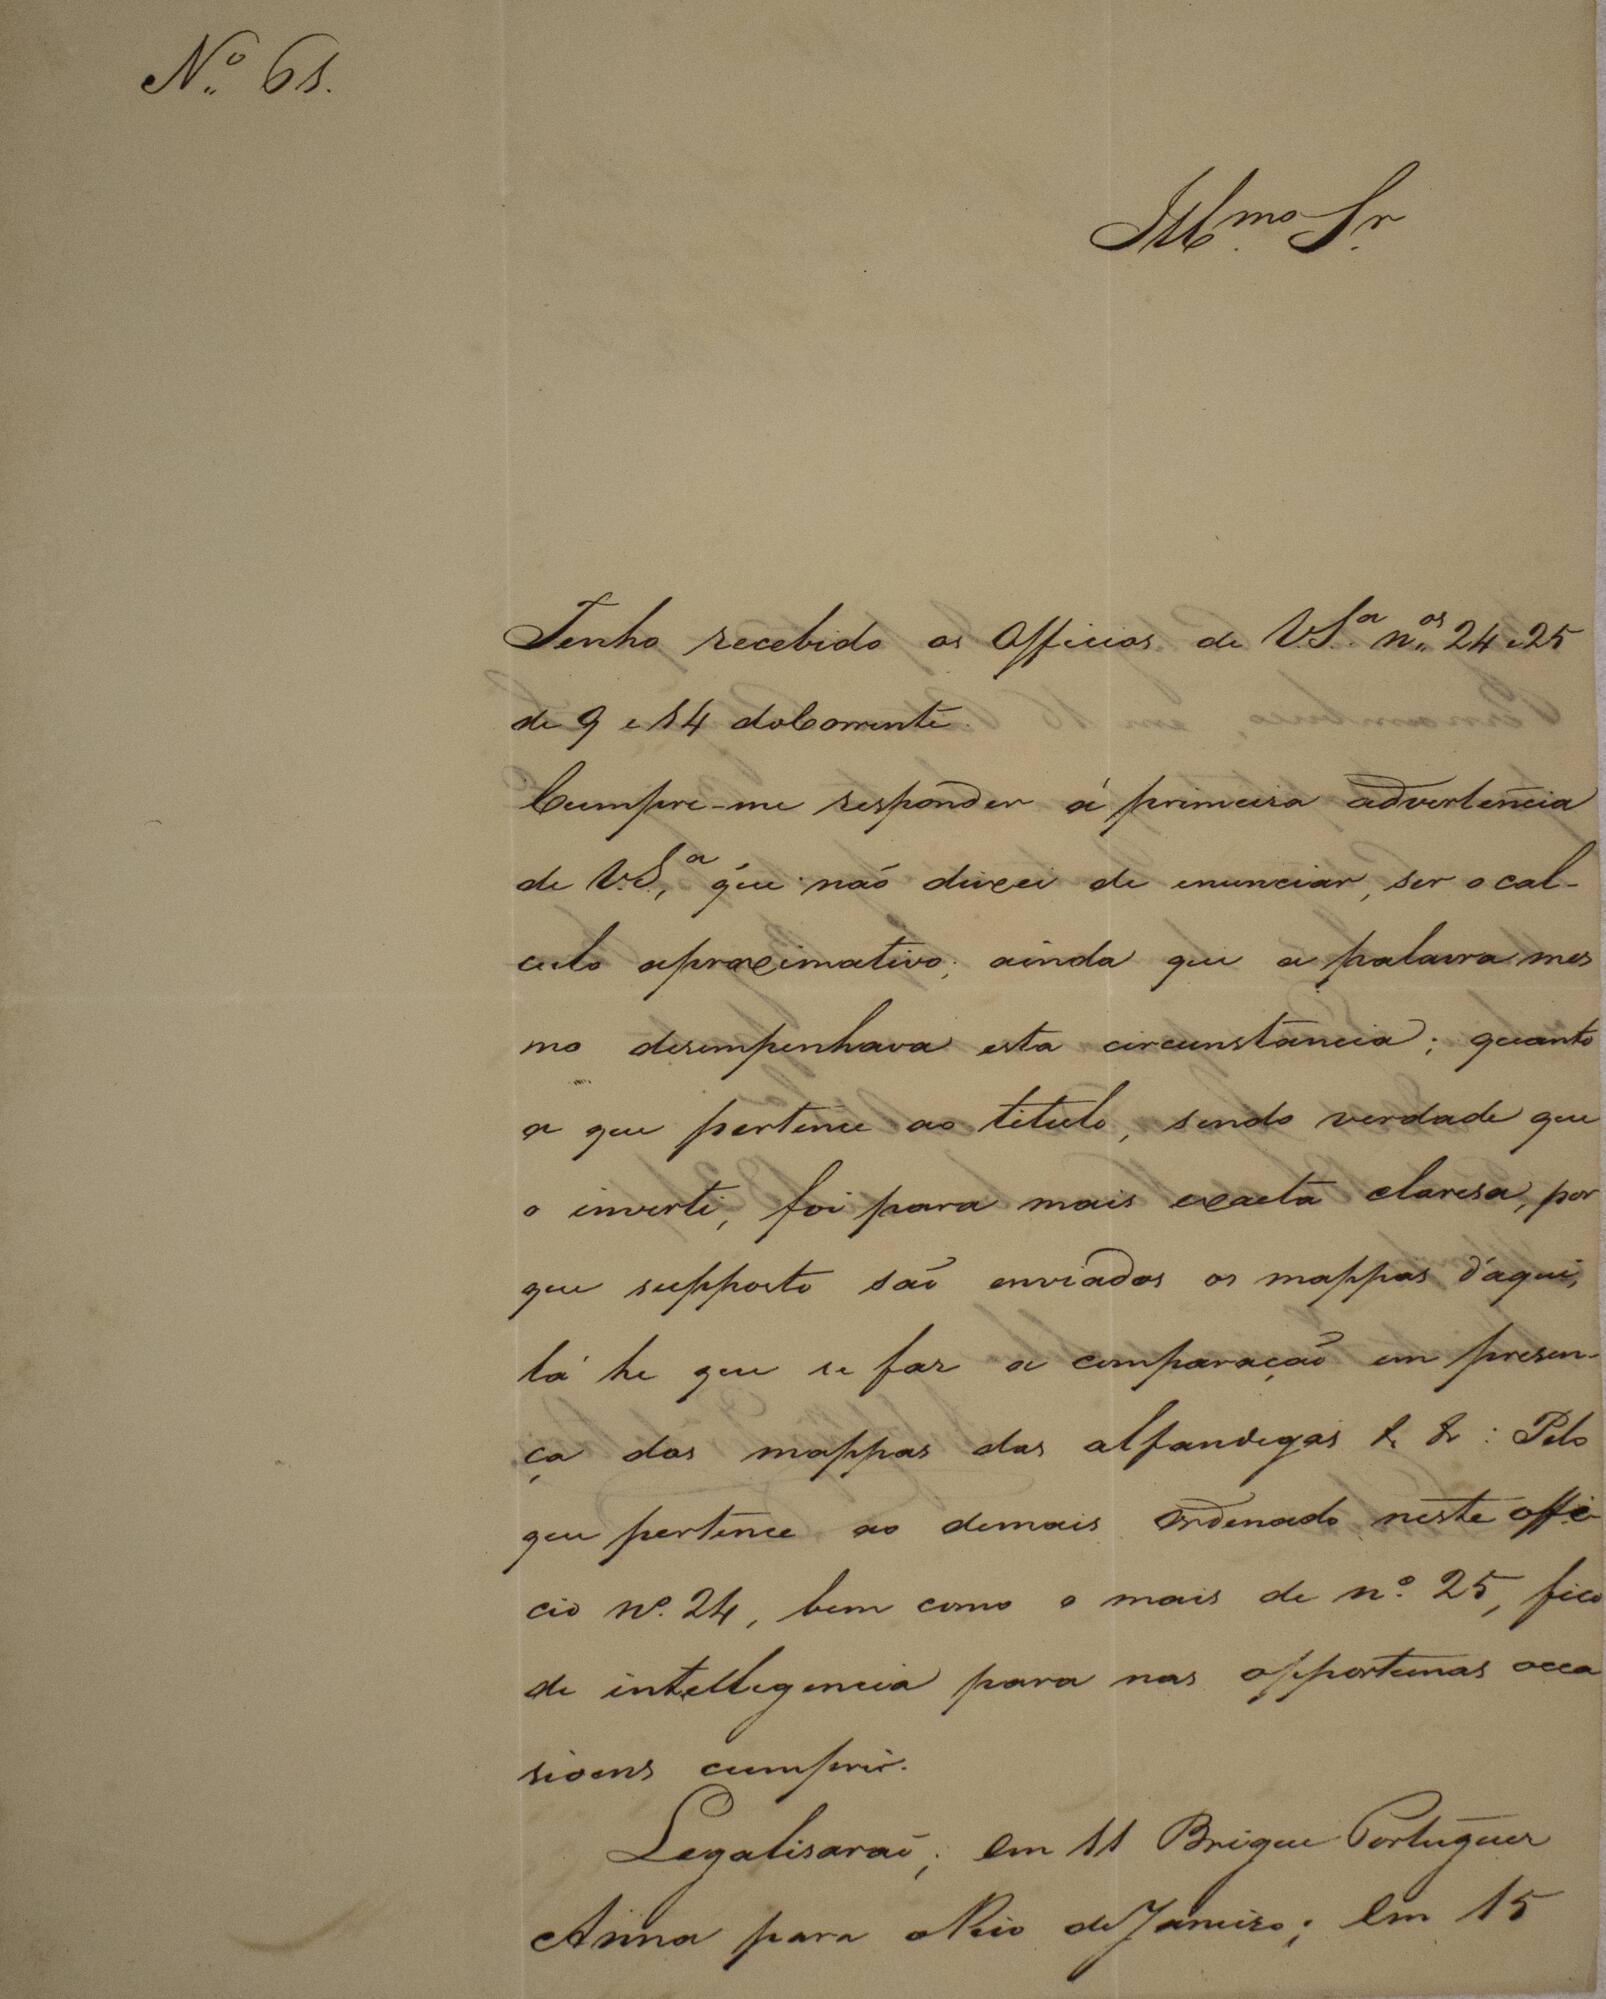 Nº 61.
Illmo Sr
Tenho recebido os Officios de V.Sª nos 24 e 25
de 9 e 14 do Corrente.
Cumpre-me responder á primeira advertencia
de V.S,ª que não deixei de enunciar, ser o cal-
culo aproximativo; ainda que a palavra mes
mo desempenhava esta circunstancia; quanto
a que pertence ao titulo, sendo verdade que
o inverti, foi para mais exacta claresa, por
que supposto são enviados os mappas d'aqui,
lá he que se faz a comparação em presen-
ça dos mappas das alfandegas & &: Pelo
que pertence ao demais ordenado neste offi-
cio nº. 24, bem como o mais de nº. 25, fico
de intellegencia para nas opportunas occa
sioens cumprir.
Legalisarão; em 11 Brigue Portuguez
Anna para o Rio de Janeiro; em 15